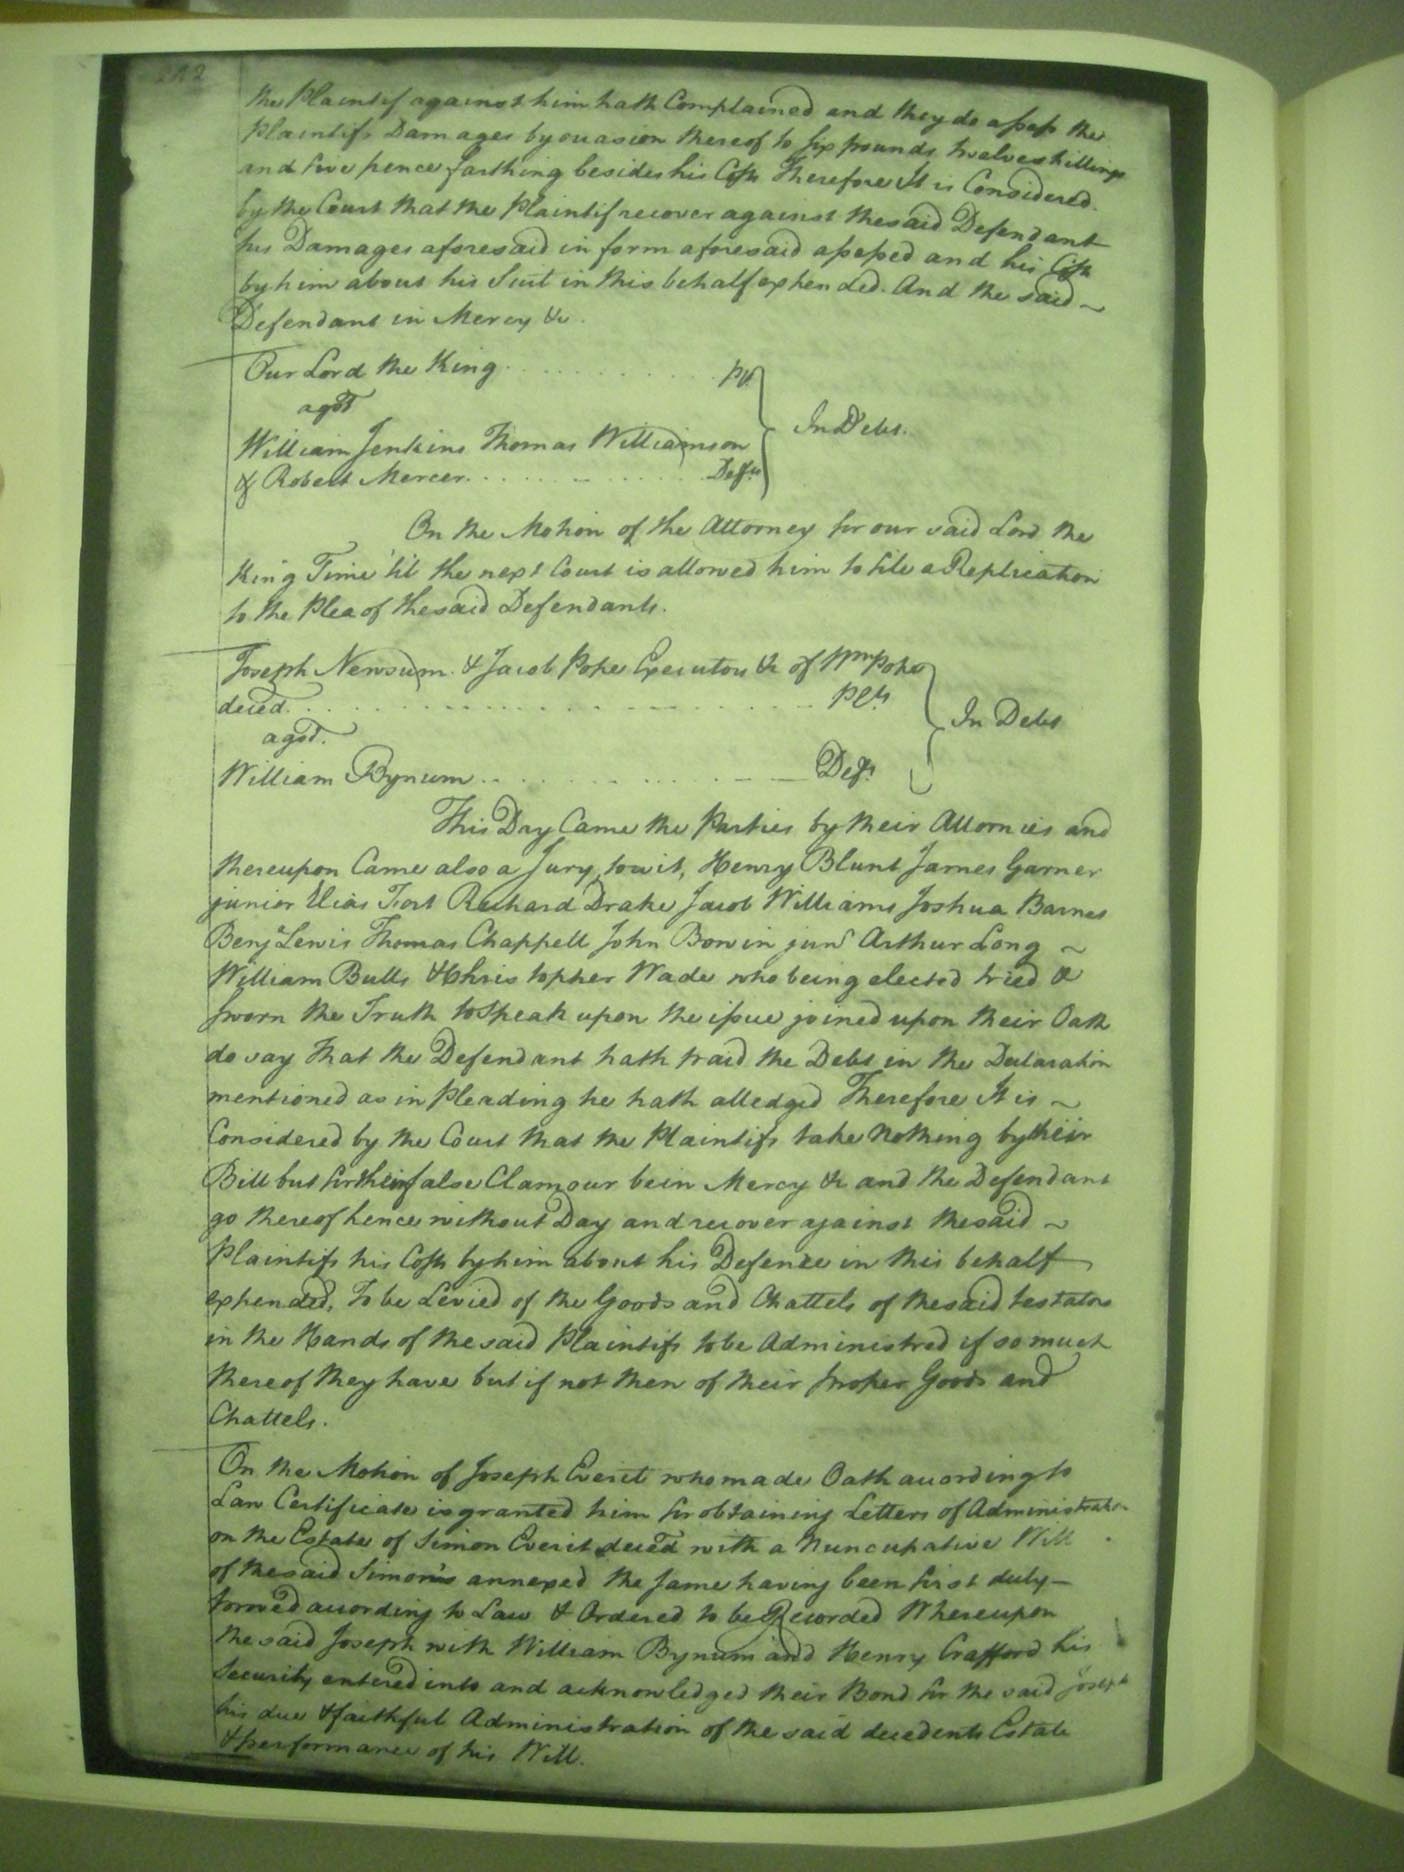 the Plaintif against him hath Complained and they do assess the
Plaintifs Damages by occasion thereof to Six pounds twelve shillings
and five pence farthing besides his Costs Therefore It is Considered
by the Court that the Plaintif recover against the said Defendant
his Damages aforesaid in form aforesaid assessed and his Costs
by him about his Suit in this behalf expended. And the said ~
Defendant in Mercy &c.
Our Lord the King . . . . . . . . . . .
agst
In Debt.
William Jenkins Thomas Williamson
& Robert Mercer . . . . . . . . . . Defts
On the Motion of the Attorney for our said Lord the
King Time 'til the next Court is allowed him to file a Replication
to the Plea of the said Defendants.
Joseph Newsum & Jacob Pope Executors &c of Wm Pope
deced. . . . . . . . . . . . . . . . Plts
In Debt
agst.
William Bynum . . . . . . . . . . Deft.
This Day Came the Parties by their Attornies and
thereupon Came also a Jury, towit, Henry Blunt James Garner
junior Elias Fort Richard Drake Jacob Williams Joshua Barnes
Benja Lewis Thomas Chappell John Bowin junr Arthur Long ~
William Bulls & Christopher Wade who being elected tried &
Sworn the Truth to Speak upon the issue joined upon their Oath
do say That the Defendant hath paid the Debt in the Declaration
mentioned as in Pleading he hath alledged Therefore It is ~
Considered by the Court that the Plaintifs take nothing by their
Bill but for their false Clamour be in Mercy &c and the Defendant
go thereof hence without Day and recover against the said ~
Plaintifs his Costs by him about his Defence in this behalf
expended, To be Levied of the Goods and Chattels of the said testators
in the Hands of the said Plaintifs to be Administred if so much
thereof they have but if not then of their proper Goods and
Chattels.
On the Motion of Joseph Everit who made Oath according to
Law Certificate is granted him for obtaining Letters of Administration
on the Estate of Simon Everit deced with a Nuncupative Will
of the said Simon's annexed the same having been first duly
proved according to Law & Ordered to be Recorded Whereupon
the said Joseph with William Bynum and Henry Crafford his
Security entered into and acknowledged their Bond for the said Joseph
his due & faithful Administration of the said decedents Estate
& performance of his Will.